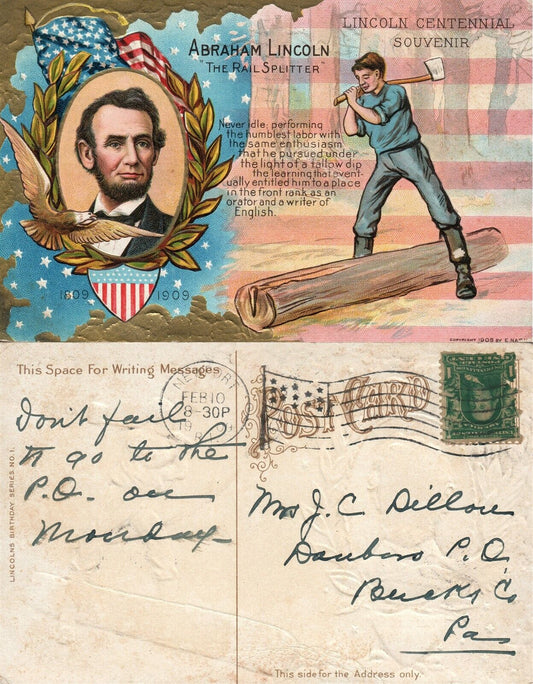 LINCOLN CENTENNIAL
SOUVENIR
ABRAHAM LINCOLN
"THE RAIL SPLITTER"
Never idle: performing
the humblest labor with
the same enthusiasm
that he pursued under
the light of a tallow dip
the learning that event-
ually entitled him to a place
in the front rank as an
orator and a writer of
English.
1809 1909
COPYRIGHT 1908 BY E. NA
This Space For Writing Messages
LINCOLN'S BIRTHDAY SERIES NO. 1.
FEB 10
8-30P
POST CARD
Don't fail
to go to the
P.O. on
Monday
Mrs J. C. Dillon
Danboro P.O.
Bucks Co
Pa
This side for the Address only.